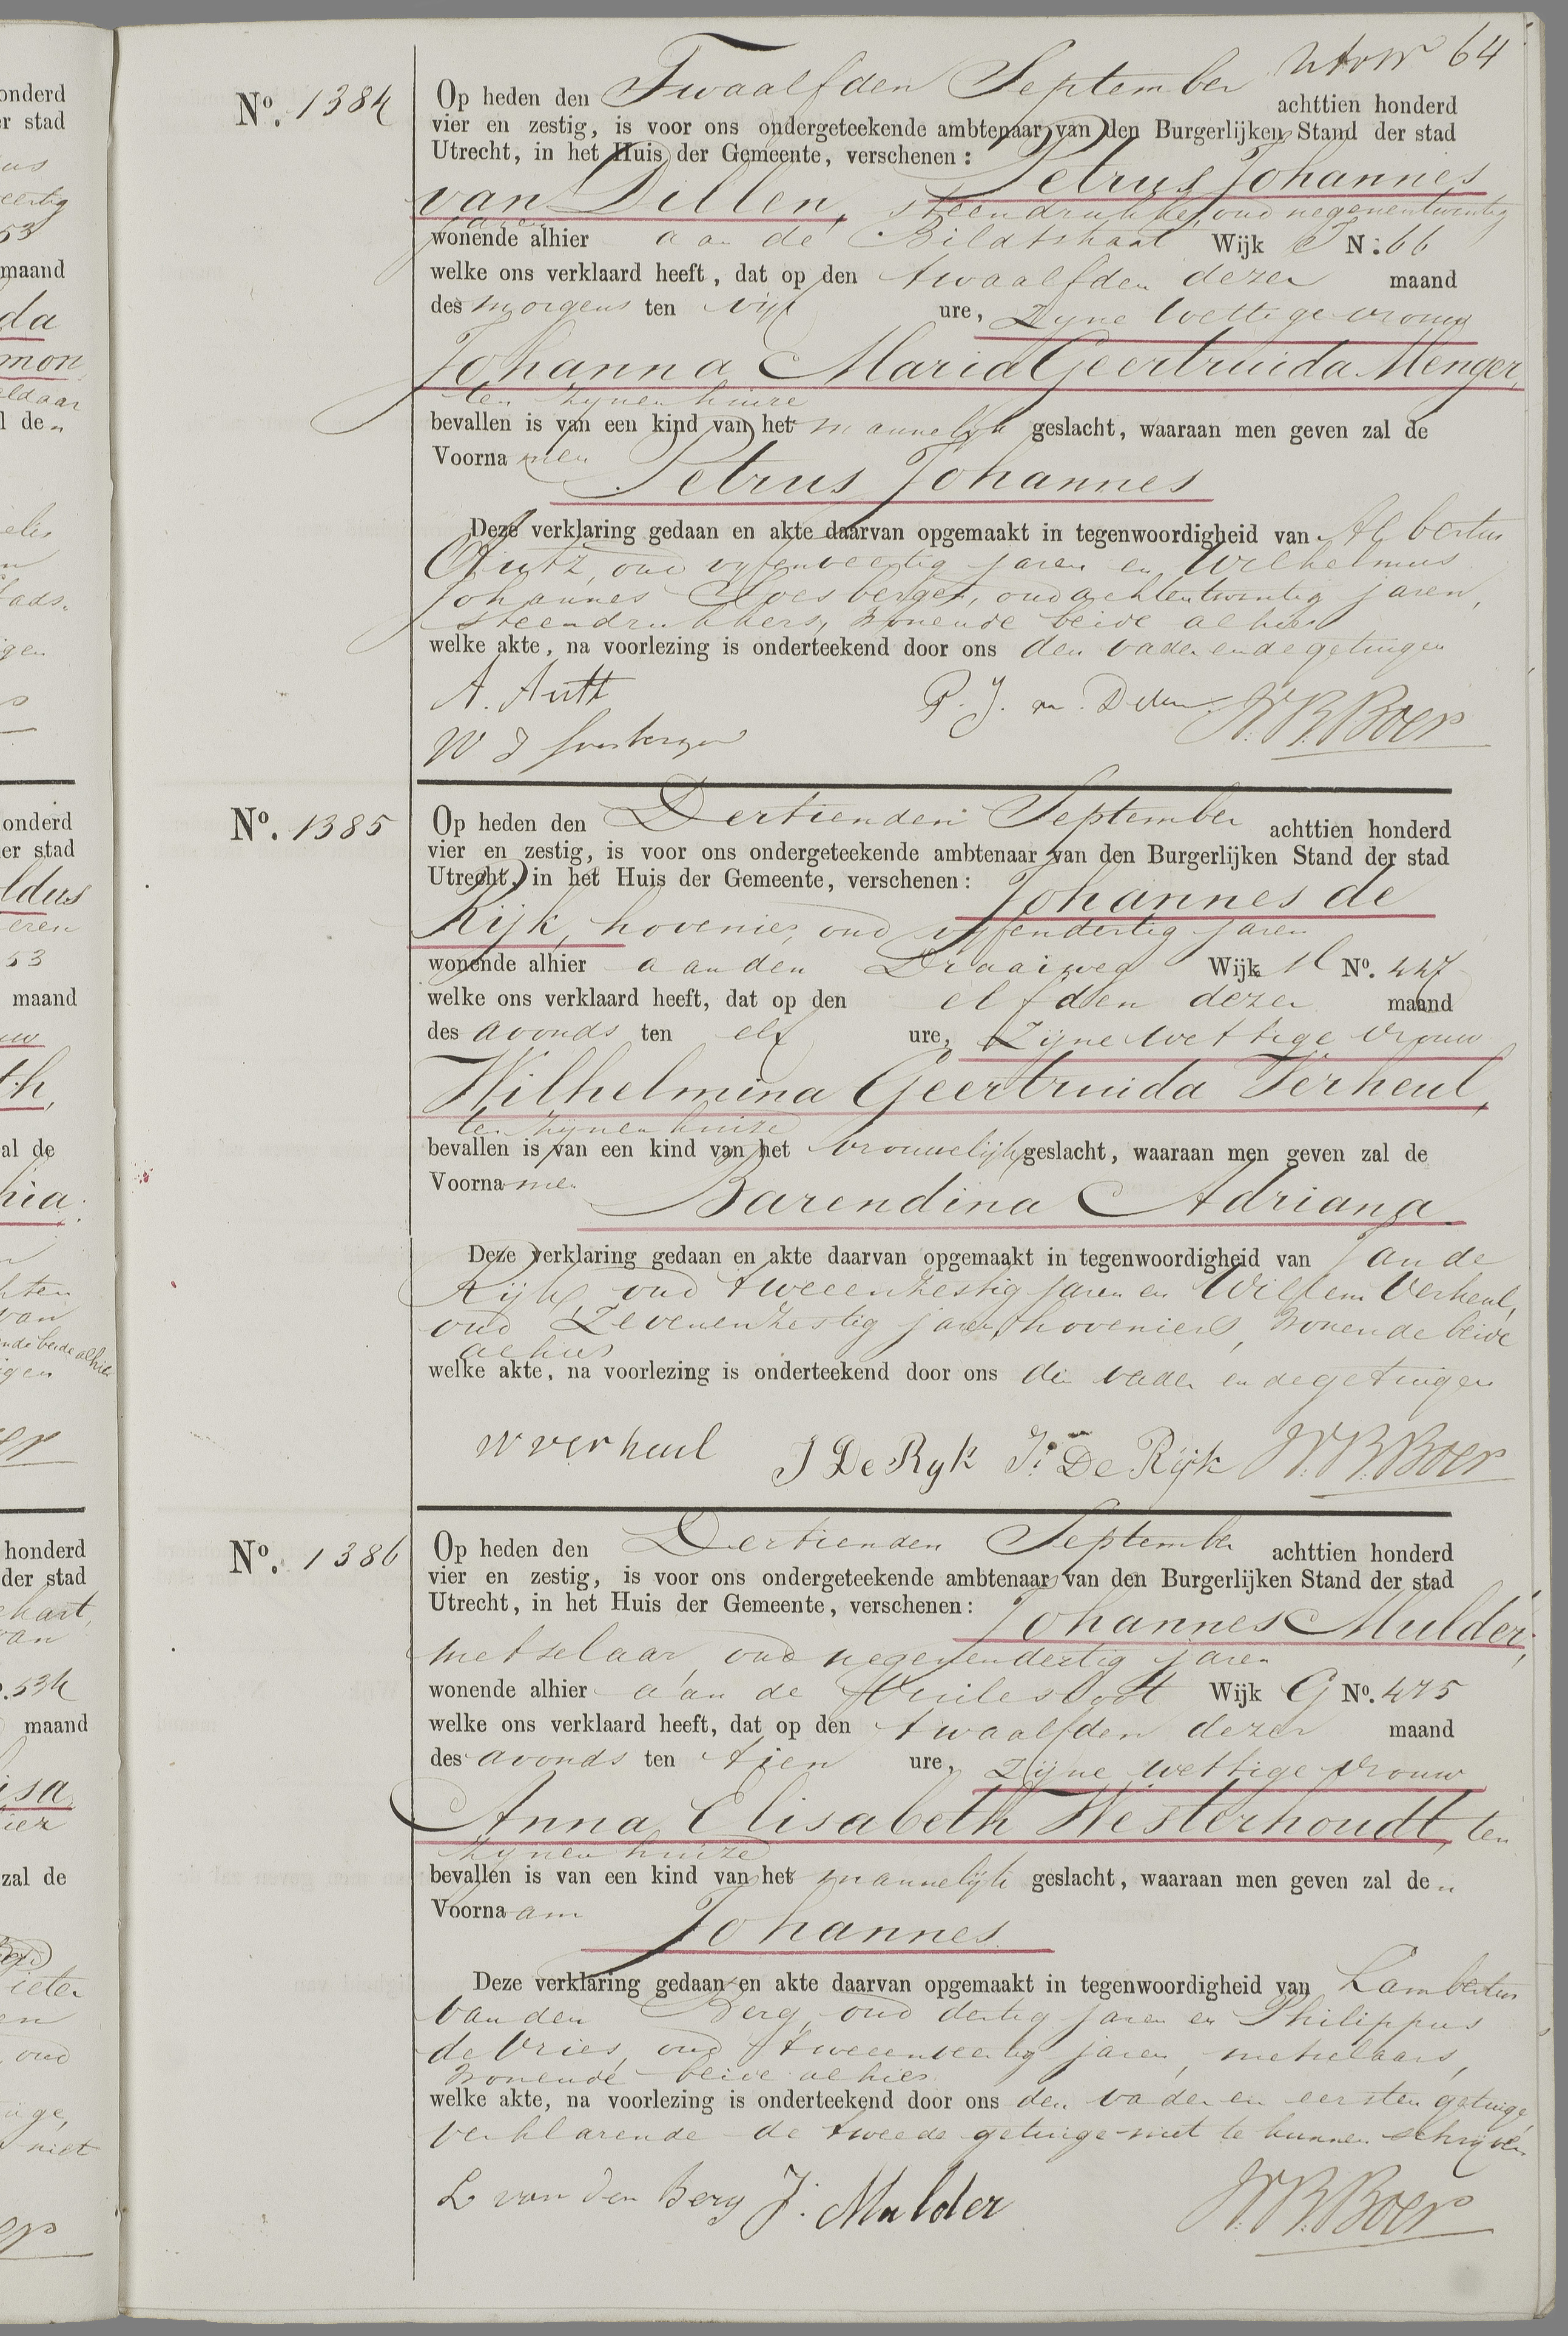 64
No. 1384
Op heden den Twaalfden September achttien honderd
vier en zestig, is voor ons ondergeteekende ambtenaar van den Burgerlijken Stand der stad
Utrecht, in het Huis der Gemeente, verschenen: Petrus Johannes
van Dillen, steendrukker, oud negenentwintig
jaren
wonende alhier aan de Bildtstraat Wijk N: 66
welke ons verklaard heeft, dat op den twaalfden dezer maand
des morgens ten vijf ure, Zijne Wettige vrouw
Johanna Maria Geertruida Menger,
ten zijnen huize
bevallen is van een kind van het mannelijk geslacht, waaraan men geven zal de
Voornamen Petrus Johannes
Deze verklaring gedaan en akte daarvan opgemaakt in tegenwoordigheid van Albertus
oud vijfenveertig jaren en Wilhelmus
Johannes oud achtentwintig jaren,
steendrukkers, wonende beide alhier
welke akte, na voorlezing is onderteekend door ons den vader en de getuigen
A. P. J. v. Dillen W.B. Boer
W J
No. 1385
Op heden den Dertienden September achttien honderd
vier en zestig, is voor ons ondergeteekende ambtenaar van den Burgerlijken Stand der stad
Utrecht, in het Huis der Gemeente, verschenen: Johannes de
Rijk, hovenier, oud vijfendertig jaren
wonende alhier aan den Draaiweg Wijk No. 447
welke ons verklaard heeft, dat op den elfden dezer maand
des avonds ten elf ure, Zijne wettige vrouw
Wilhelmina Geertruida Verheul,
ten zijnen huize
bevallen is van een kind van het vrouwelijk geslacht, waaraan men geven zal de
Voornamen Barendina Adriana
Deze verklaring gedaan en akte daarvan opgemaakt in tegenwoordigheid van Jan de
Rijk, oud tweeenzestig jaren en Willem Verheul,
oud Zevenenzestig jaren, hoveniers, wonende beide
alhier
welke akte, na voorlezing is onderteekend door ons den vader en de getuigen
W verheul J De Ryk Jn De Rijk W.B. Boer
No. 1386
Op heden den Dertienden September achttien honderd
vier en zestig, is voor ons ondergeteekende ambtenaar van den Burgerlijken Stand der stad
Utrecht, in het Huis der Gemeente, verschenen: Johannes Mulder,
metselaar, oud negenendertig jaren
wonende alhier aan de Vuilesloot Wijk G No. 475
welke ons verklaard heeft, dat op den twaalfden dezer maand
des avonds ten tien ure, zijne wettige vrouw
Anna Elisabeth Westerhoudt, ten
zijnen huize
bevallen is van een kind van het mannelijk geslacht, waaraan men geven zal de „
Voornaam Johannes
Deze verklaring gedaan en akte daarvan opgemaakt in tegenwoordigheid van Lambertus
van den Berg, oud dertig jaren en Philippus
de Vries, oud tweeenveertig jaren, metselaars,
wonende beide alhier
welke akte, na voorlezing is onderteekend door ons den vader en eersten getuige,
verklarende de tweede getuige niet te kunnen schrijven
L van den Berg J. Mulder W.B. Boer